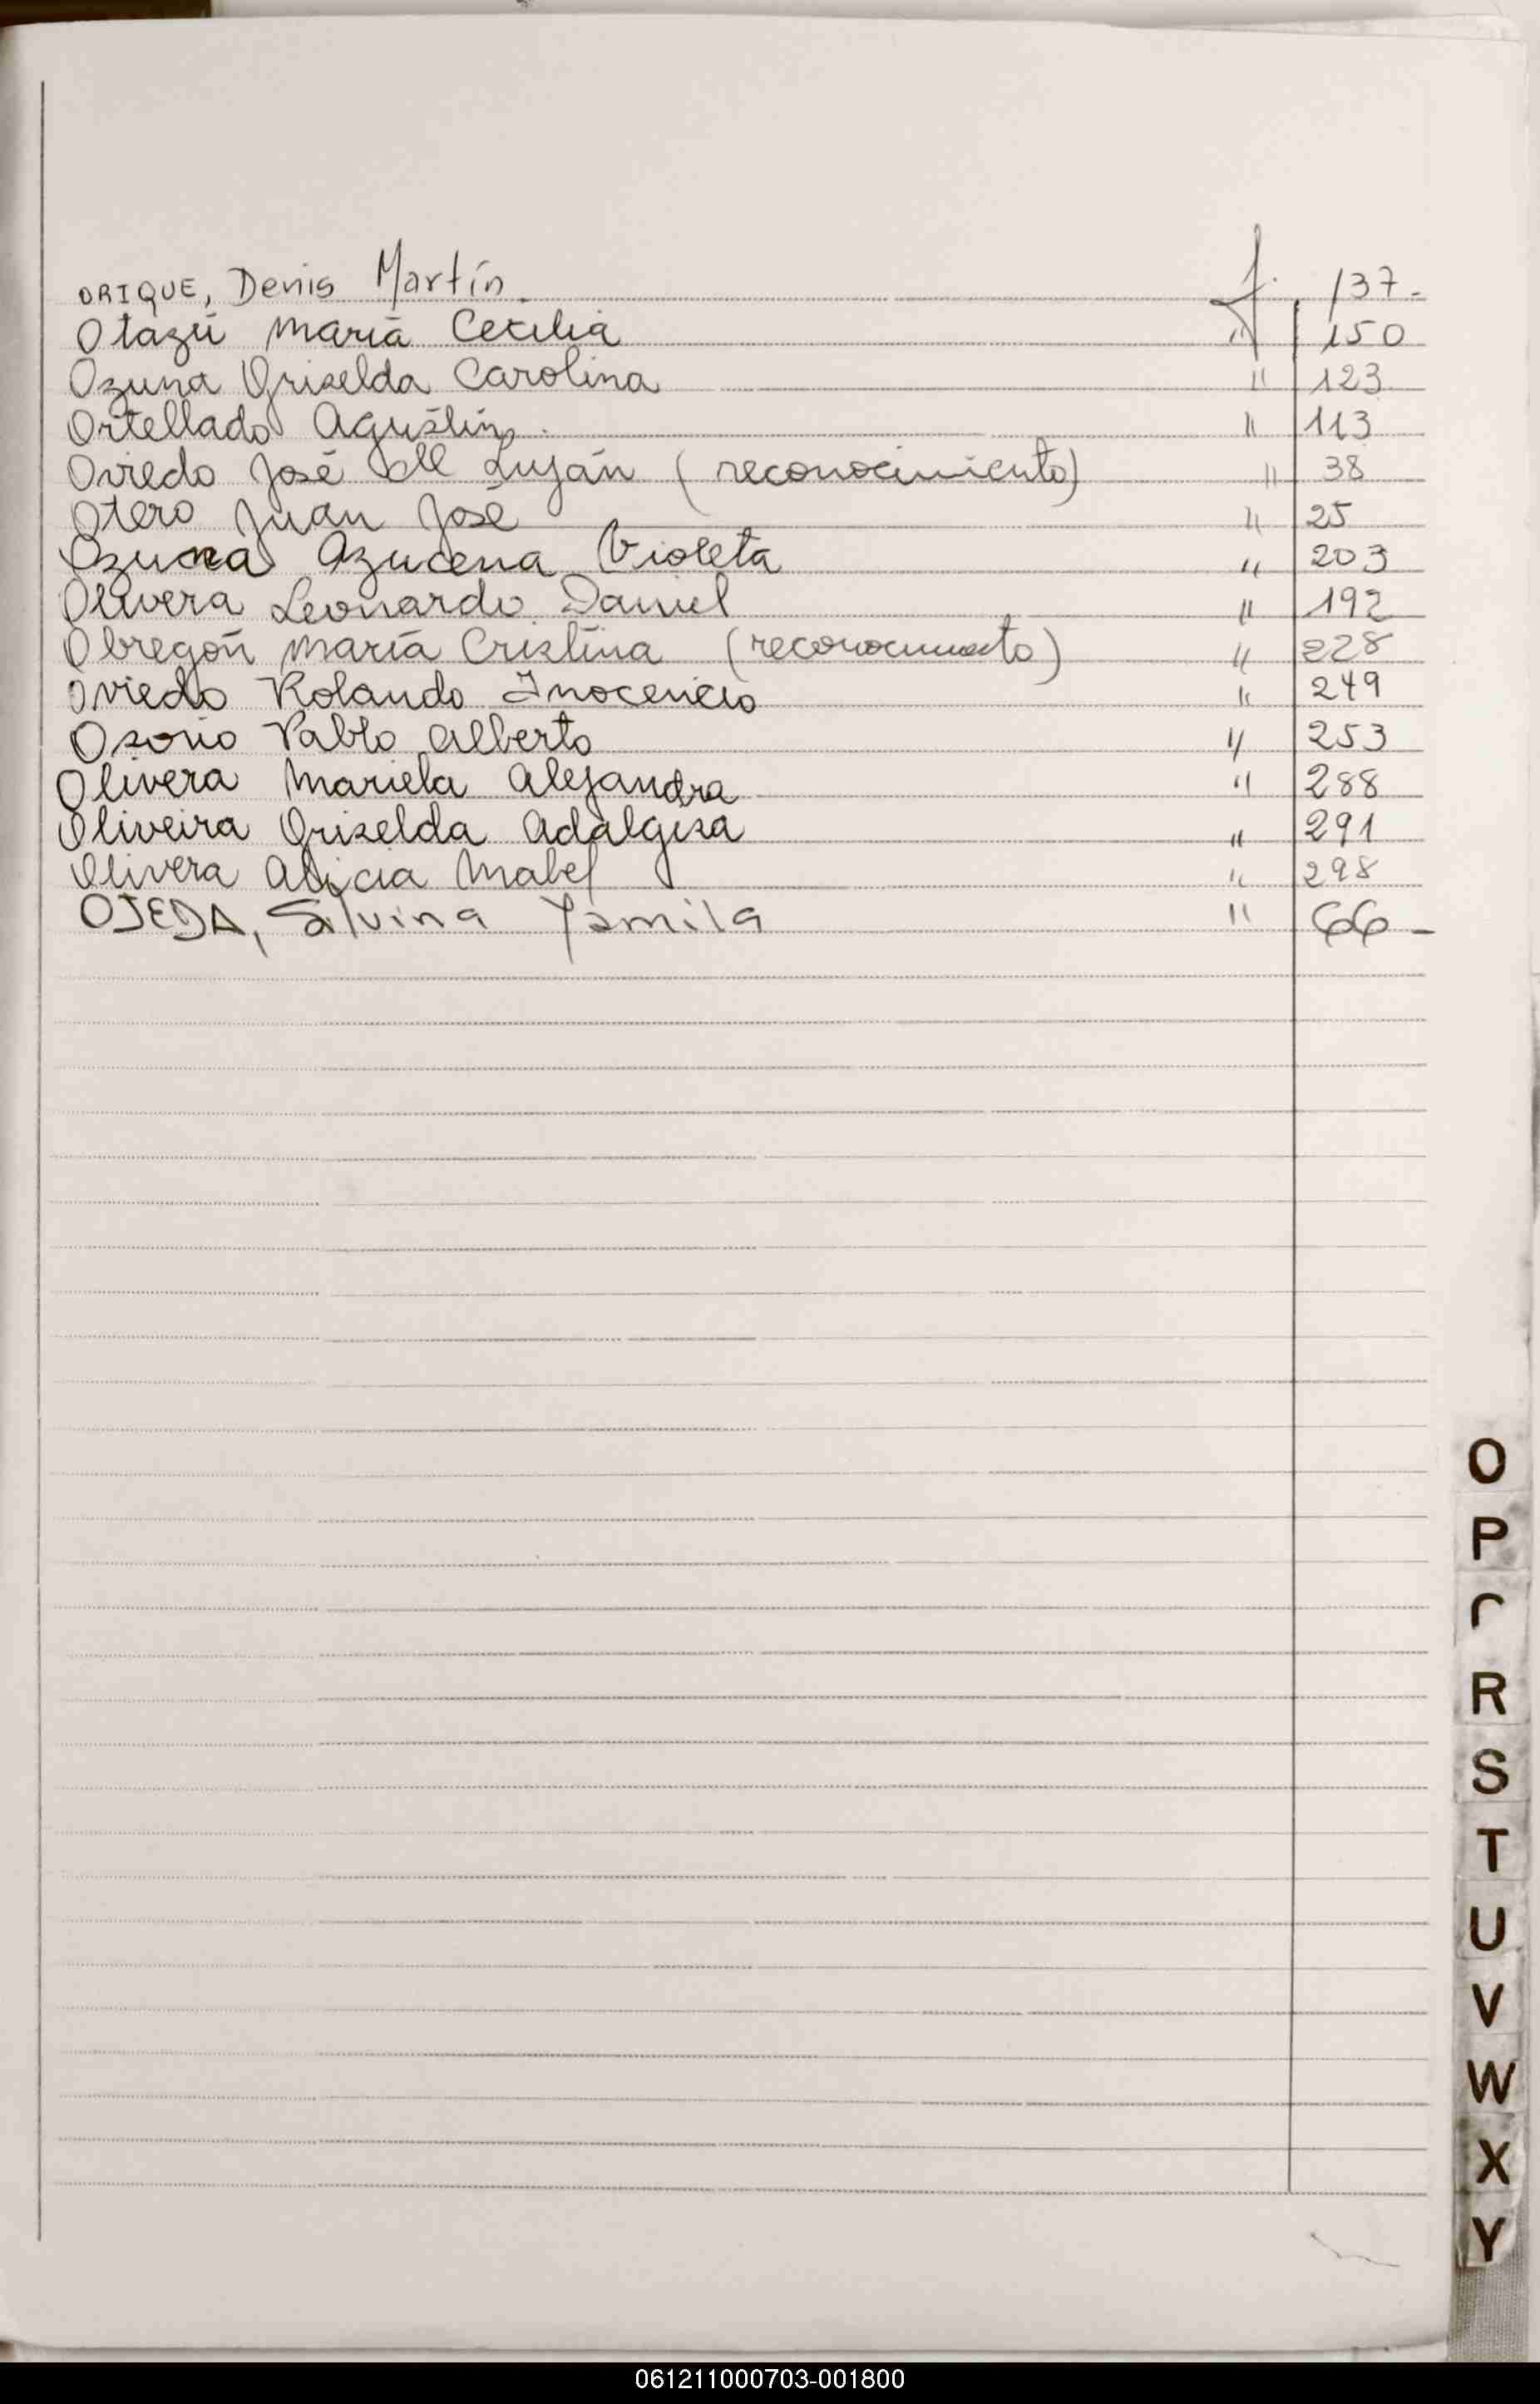 ORIQUE, Denis Martín. f. 137-
Otazú María Cecilia " 150
Ozuna Griselda Carolina " 123
Ortellado Agustín. " 113
Oviedo José del Luján (reconocimiento) " 38
Otero Juan José " 25
Ozuna Azucena Violeta " 203
Olivera Leonardo Daniel " 192
Obregón María Cristina (reconocimiento) " 228
Oviedo Rolando Inocencio " 249
Osorio Pablo Alberto " 253
Olivera Mariela Alejandra " 288
Oliveira Griselda Adalgisa " 291
Olivera Alicia Mabel " 298
OJEDA, Silvina Yamila " 66-
O
P
R
S
T
U
V
W
X
Y
061211000703-001800